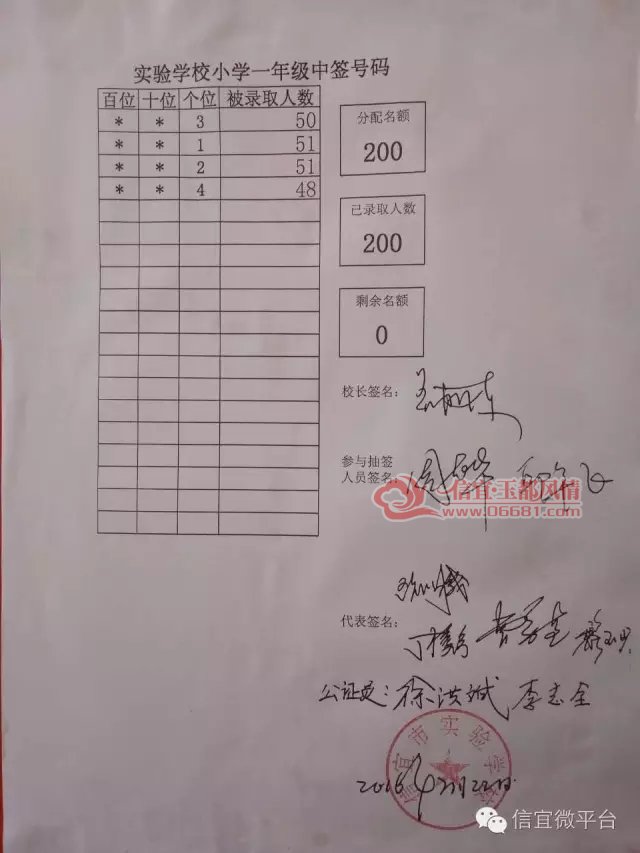 实验学校小学一年级中签号码
百位 十位 个位 被录取人数
* * 3 50
* * 1 51
* * 2 51
* * 4 48
分配名额
200
已录取人数
200
剩余名额
0
校长签名:
参与抽签
人员签名:
信宜·玉都风情
www.06681.com
代表签名:
公证员: 徐洪斌 李志全
信宜市实验学校
2016年7月22日
信宜微平台